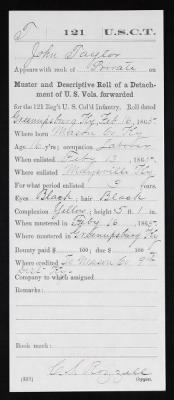 T 121 U.S.C.T.
John Taylor
Appears with rank of Private on
Muster and Descriptive Roll of a Detach-
ment of U. S. Vols. forwarded
for the 121 Reg't U. S. Col'd Infantry. Roll dated
Greenupsburg Ky Feb 16, 1865.
Where born Mason Co Ky
Age 16 y'rs; occupation Laborer
When enlisted Feby 13, 1865.
Where enlisted Maysville Ky
For what period enlisted 3 years.
Eyes Black; hair Black
Complexion Yellow; height 5 ft. 1 in.
When mustered in Feby 16, 1865.
Where mustered in Greenupsburg Ky
Bounty paid $ 100; due $ 100
Where credited Mason Co 9th
Dist Ky
Company to which assigned
Remarks:
Book mark:
(339) Copyist.